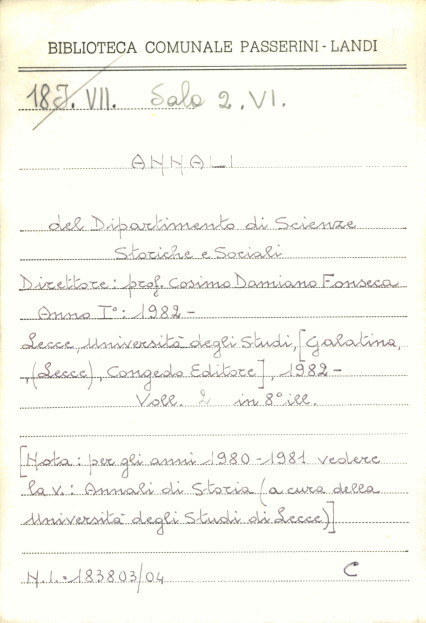 BIBLIOTECA COMUNALE PASSERINI-LANDI
18J. VII. Sala 2. VI.
ANNALI
del Dipartimento di Scienze
Storiche e Sociali
Direttore: prof. Cosimo Damiano Fonseca
Anno I°: 1982-
Lecce, Università degli Studi, [Galatina,
, (Lecce), Congedo Editore], 1982-
Voll. 2 in 8° ill.
[Nota: per gli anni 1980-1981 vedere
la v.: Annali di Storia (a cura della
Università degli Studi di Lecce)]
N.I. 183803/04 C